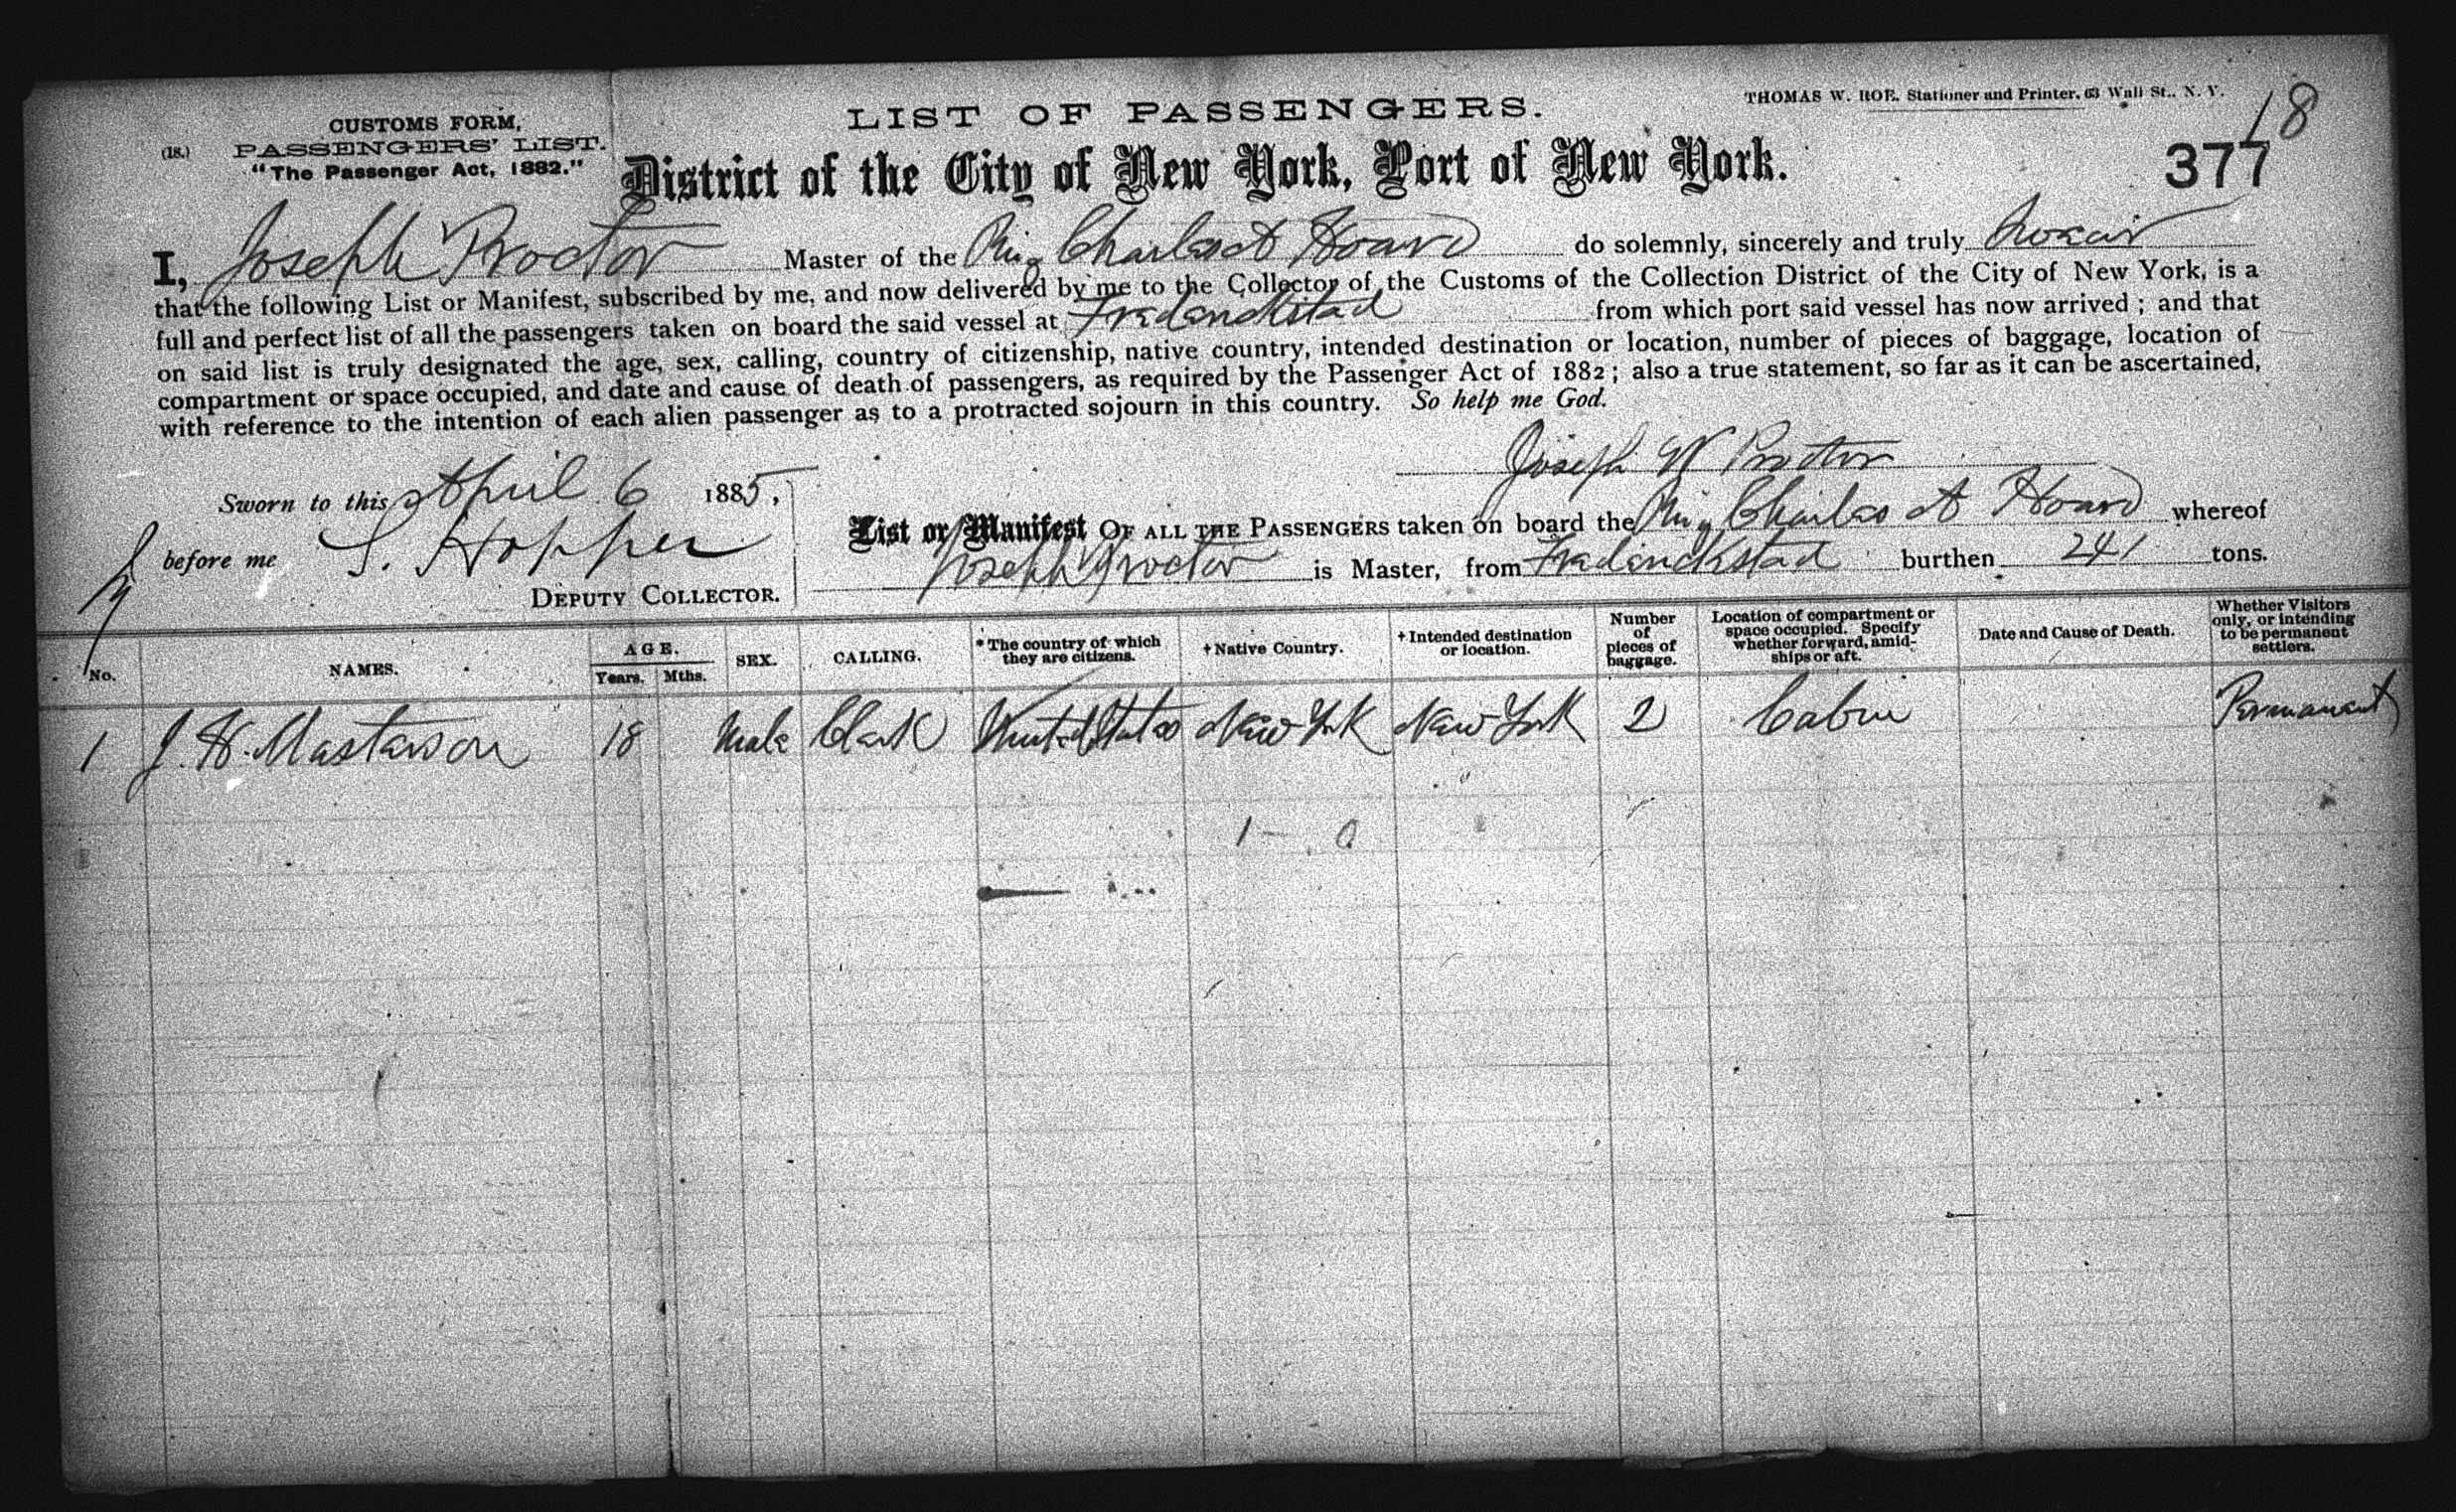 CUSTOMS FORM,
(18.) PASSENGERS' LIST.
"The Passenger Act, 1882."
LIST OF PASSENGERS.
THOMAS W. ROE, Stationer and Printer, 63 Wall St., N. Y.
18
District of the City of New York, Port of New York.
377
I, Joseph Proctor Master of the Brig Charles A Hoard do solemnly, sincerely and truly swear
that the following List or Manifest, subscribed by me, and now delivered by me to the Collector of the Customs of the Collection District of the City of New York, is a
full and perfect list of all the passengers taken on board the said vessel at Fredenckstad from which port said vessel has now arrived ; and that
on said list is truly designated the age, sex, calling, country of citizenship, native country, intended destination or location, number of pieces of baggage, location of
compartment or space occupied, and date and cause of death of passengers, as required by the Passenger Act of 1882 ; also a true statement, so far as it can be ascertained,
with reference to the intention of each alien passenger as to a protracted sojourn in this country. So help me God.
Joseph W Proctor
Sworn to this April 6 1885,
before me S. Hopper
DEPUTY COLLECTOR.
List or Manifest OF ALL THE PASSENGERS taken on board the Brig Charles A Hoard whereof
Joseph Proctor is Master, from Fredenckstad burthen 241 tons.
No. NAMES. AGE. Years. Mths. SEX. CALLING. *The country of which they are citizens. †Native Country. †Intended destination or location. Number of pieces of baggage. Location of compartment or space occupied. Specify whether forward, amidships or aft. Date and Cause of Death. Whether Visitors only, or intending to be permanent settlers.
1 J. H. Masterson 18 Male Clerk United States New York New York 2 Cabin Permanent
1 - 0